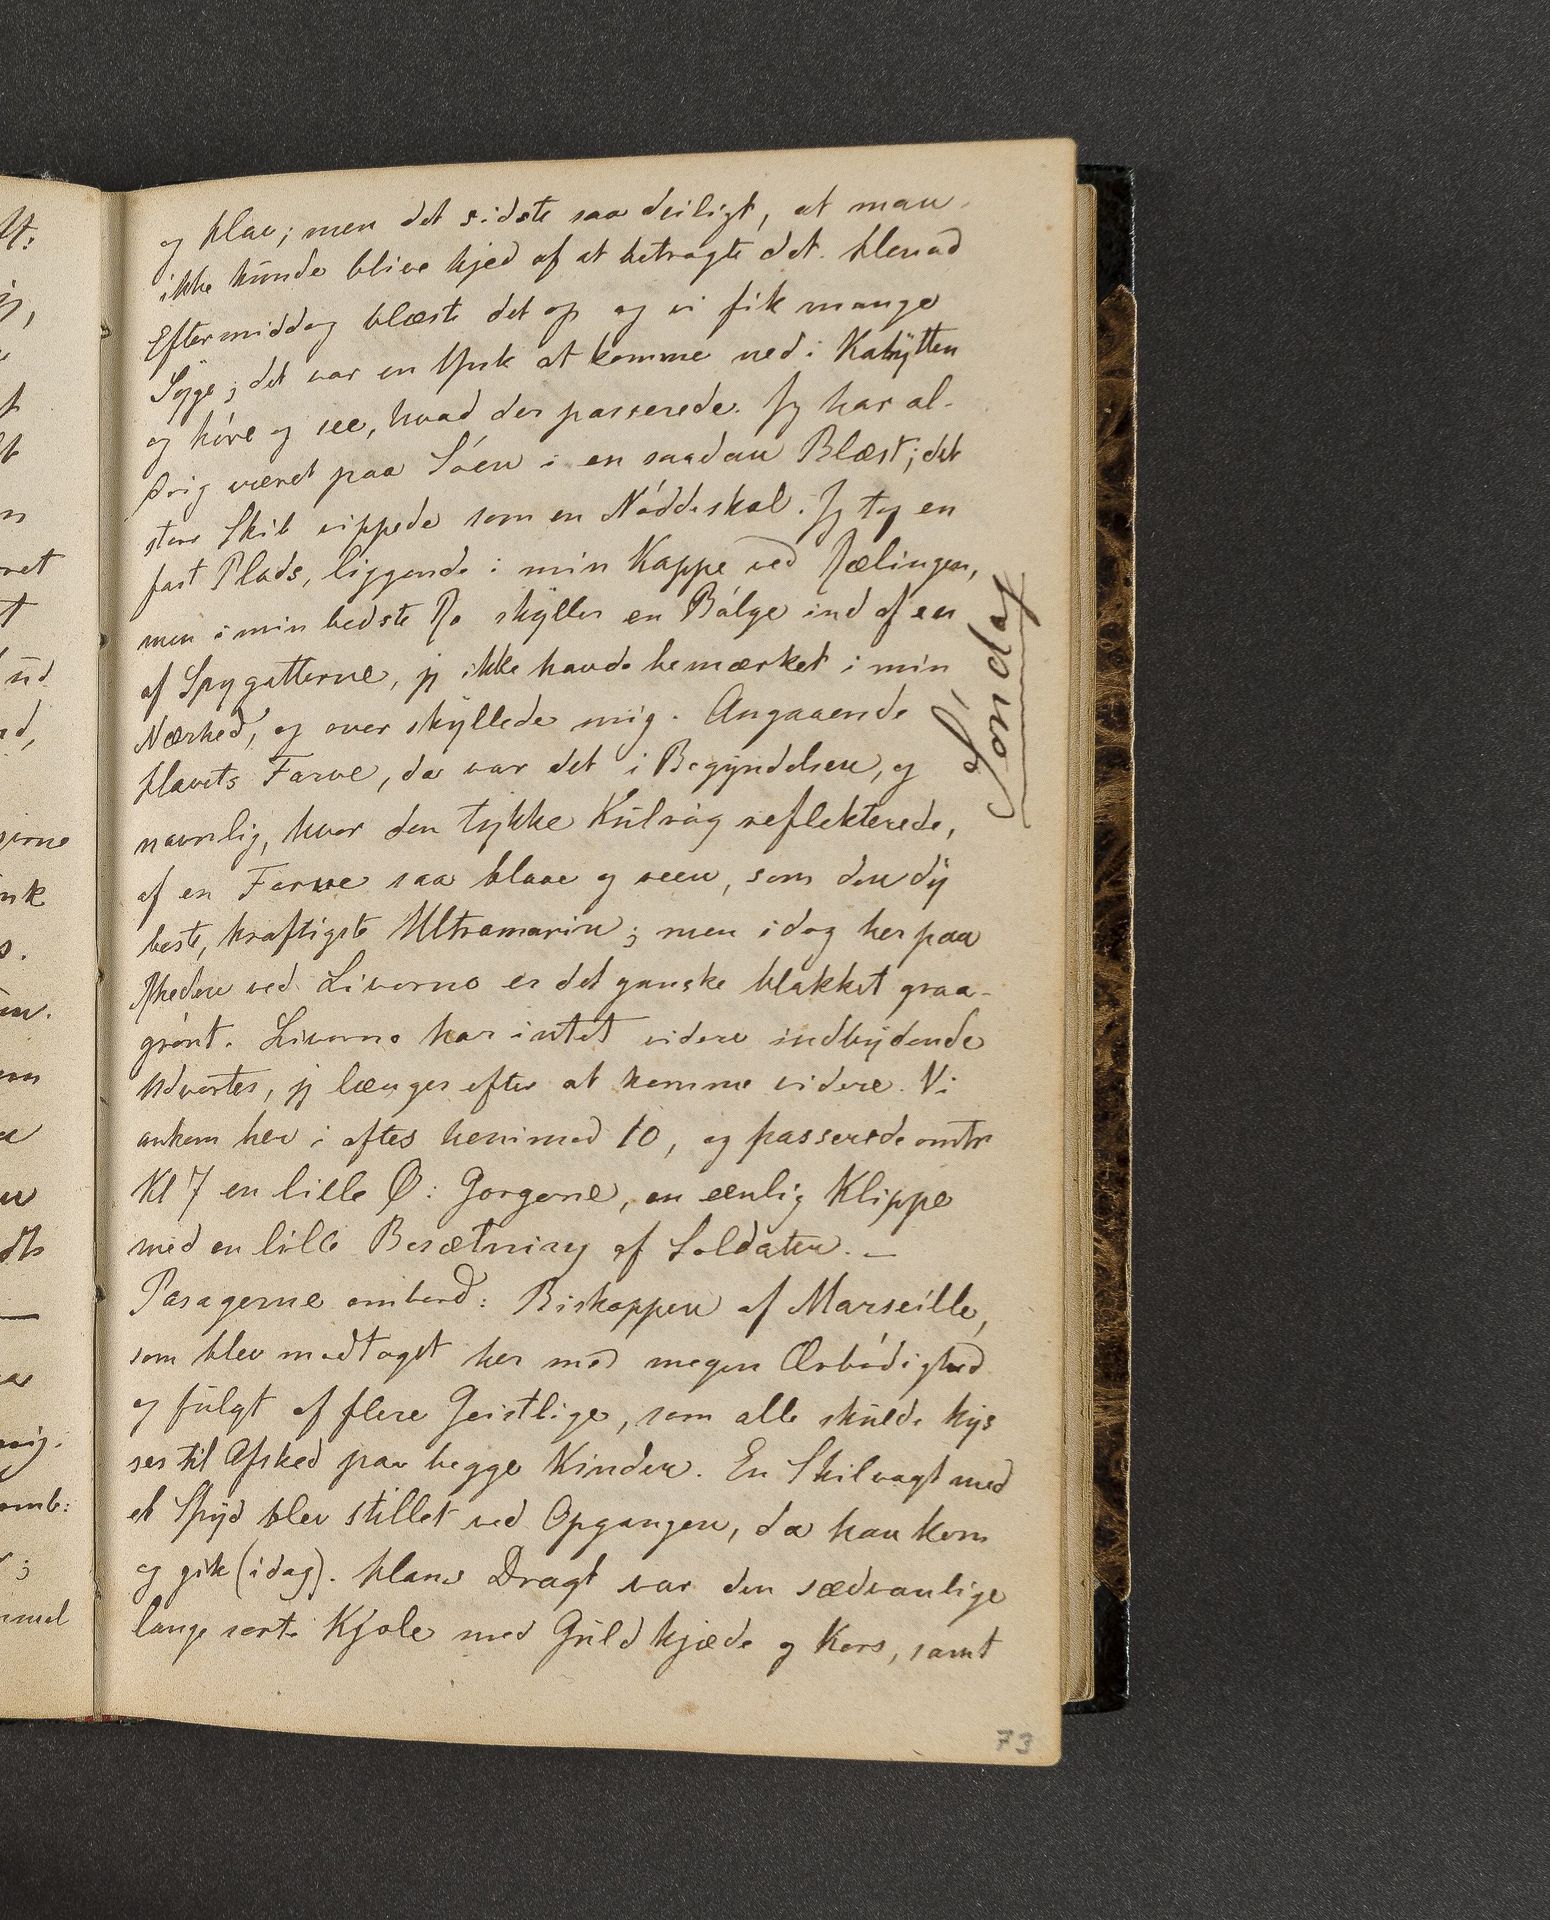 og Hav; men det sidste saa deiligt, at man
ikke kunde blive kjed af at betragte det. Henad
Eftermiddag blæste det op og vi fik mange
Syge; det var en Ynk at komme ned i Kahytten
og höre og see, hvad der passerede. Jeg har al-
drig været paa Söen i en saadan Blæst; det
store Skib vippede som en Nöddeskal. Jeg tog en
fast Plads, liggende i min Kappe ved Rælingen,
men i min bedste Ro skyller en Bölge ind af en
af Spygatterne, jeg ikke havde bemærket i min
Nærhed, og over skyllede mig. Angaaende
Havets Farve, da var det i Begyndelsen, og
navnlig, hvor den tykke Kulrög reflekterede,
af en Farve saa blaae og reen, som den dy
beste, kraftigste Ultramarin; men idag her paa
Rheden ved Livorno er det ganske blakket graa-
grönt. Livorno har intet videre indbydende
Udvortes, jeg længes efter at komme videre. Vi
ankom her i aftes henimod 10, og passerede omtr
Kl 7 en lille Ø: Gorgone, en eenlig Klippe
med en lille Besætning af Soldater. —
Pasagerne ombord: Biskoppen af Marseille,
som blev modtaget her med megen Ærbödighed
og fulgt af flere Geistlige, som alle skulde kys
ses til Afsked paa begge Kinder. En Skilvagt med
et Spyd blev stillet ved Opgangen, da han kom
og gik (idag). Hans Dragt var den sædvanlige
lange sorte Kjole med Guldkjæde og Kors, samt
Söndag
73